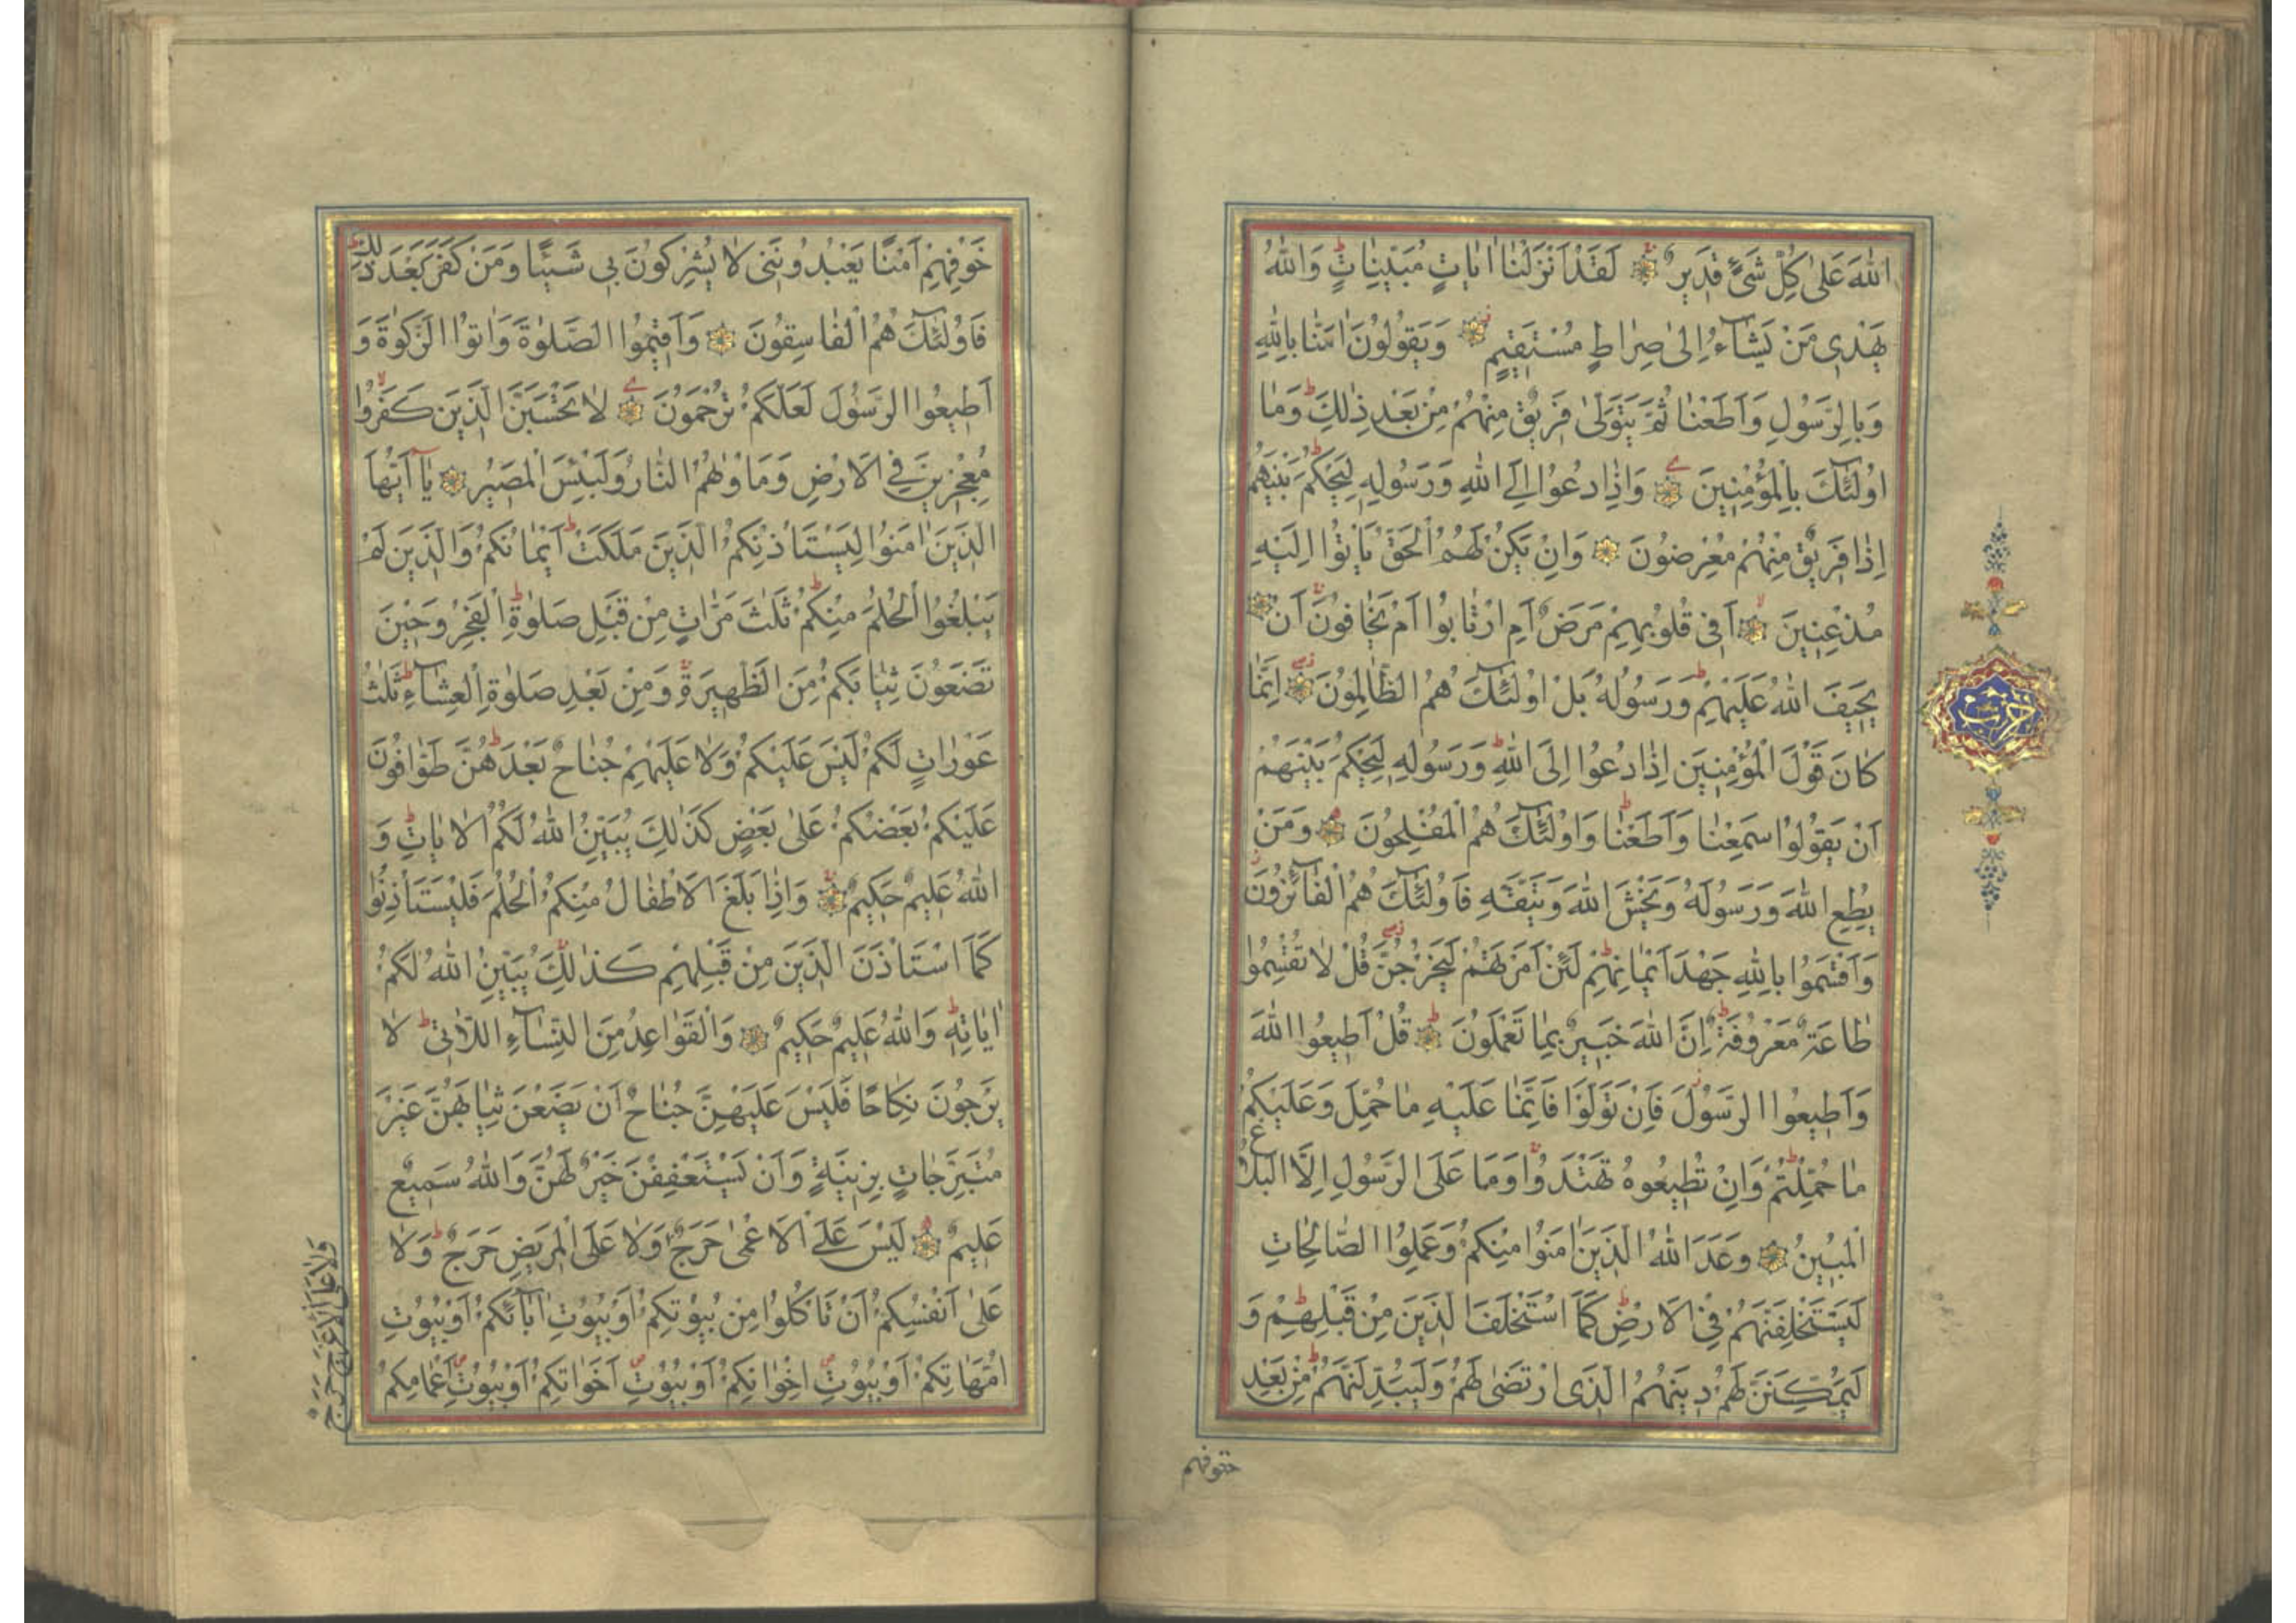 اللهَ عَلىٰ كُلِّ شَىْءٍ قَدِيرٌ لَقَدْ اَنْزَلْنَا اٰيَاتٍ مُبَيِّنَاتٍ وَاللهُ
يَهْدِى مَنْ يَشَآءُ اِلىٰ صِرَاطٍ مُسْتَقِيمٍ وَيَقُولُونَ اٰمَنَّا بِاللهِ
وَبِالرَّسُولِ وَاَطَعْنَا ثُمَّ يَتَوَلّٰى فَرِيقٌ مِنْهُمْ مِنْ بَعْدِ ذٰلِكَ وَمَا
اُولٰٓئِكَ بِالْمُؤْمِنِينَ وَاِذَا دُعُوا اِلَى اللهِ وَرَسُولِهِ لِيَحْكُمَ بَيْنَهُمْ
اِذَا فَرِيقٌ مِنْهُمْ مُعْرِضُونَ وَاِنْ يَكُنْ لَهُمُ الْحَقُّ يَاْتُوا اِلَيْهِ
مُذْعِنِينَ اَفِى قُلُوبِهِمْ مَرَضٌ اَمِ ارْتَابُوا اَمْ يَخَافُونَ اَنْ
يَحِيفَ اللهُ عَلَيْهِمْ وَرَسُولُهُ بَلْ اُولٰٓئِكَ هُمُ الظَّالِمُونَ اِنَّمَا
كَانَ قَوْلَ الْمُؤْمِنِينَ اِذَا دُعُوا اِلَى اللهِ وَرَسُولِهِ لِيَحْكُمَ بَيْنَهُمْ
اَنْ يَقُولُوا سَمِعْنَا وَاَطَعْنَا وَاُولٰٓئِكَ هُمُ الْمُفْلِحُونَ وَمَنْ
يُطِعِ اللهَ وَرَسُولَهُ وَيَخْشَ اللهَ وَيَتَّقْهِ فَاُولٰٓئِكَ هُمُ الْفَآئِزُونَ
وَاَقْسَمُوا بِاللهِ جَهْدَ اَيْمَانِهِمْ لَئِنْ اَمَرْتَهُمْ لَيَخْرُجُنَّ قُلْ لَا تُقْسِمُوا
طَاعَةٌ مَعْرُوفَةٌ اِنَّ اللهَ خَبِيرٌ بِمَا تَعْمَلُونَ قُلْ اَطِيعُوا اللهَ
وَاَطِيعُوا الرَّسُولَ فَاِنْ تَوَلَّوْا فَاِنَّمَا عَلَيْهِ مَا حُمِّلَ وَعَلَيْكُمْ
مَا حُمِّلْتُمْ وَاِنْ تُطِيعُوهُ تَهْتَدُوا وَمَا عَلَى الرَّسُولِ اِلَّا الْبَلَاغُ
الْمُبِينُ وَعَدَ اللهُ الَّذِينَ اٰمَنُوا مِنْكُمْ وَعَمِلُوا الصَّالِحَاتِ
لَيَسْتَخْلِفَنَّهُمْ فِى الْاَرْضِ كَمَا اسْتَخْلَفَ الَّذِينَ مِنْ قَبْلِهِمْ وَ
لَيُمَكِّنَنَّ لَهُمْ دِينَهُمُ الَّذِى ارْتَضٰى لَهُمْ وَلَيُبَدِّلَنَّهُمْ مِنْ بَعْدِ
خوفهم
حزب
خَوْفِهِمْ اَمْنًا يَعْبُدُونَنِى لَا يُشْرِكُونَ بِى شَيْئًا وَمَنْ كَفَرَ بَعْدَ ذٰلِكَ
فَاُولٰٓئِكَ هُمُ الْفَاسِقُونَ وَاَقِيمُوا الصَّلٰوةَ وَاٰتُوا الزَّكٰوةَ وَ
اَطِيعُوا الرَّسُولَ لَعَلَّكُمْ تُرْحَمُونَ لَا تَحْسَبَنَّ الَّذِينَ كَفَرُوا
مُعْجِزِينَ فِى الْاَرْضِ وَمَاْوٰيهُمُ النَّارُ وَلَبِئْسَ الْمَصِيرُ يَآ اَيُّهَا
الَّذِينَ اٰمَنُوا لِيَسْتَاْذِنْكُمُ الَّذِينَ مَلَكَتْ اَيْمَانُكُمْ وَالَّذِينَ لَمْ
يَبْلُغُوا الْحُلُمَ مِنْكُمْ ثَلٰثَ مَرَّاتٍ مِنْ قَبْلِ صَلٰوةِ الْفَجْرِ وَحِينَ
تَضَعُونَ ثِيَابَكُمْ مِنَ الظَّهِيرَةِ وَمِنْ بَعْدِ صَلٰوةِ الْعِشَآءِ ثَلٰثُ
عَوْرَاتٍ لَكُمْ لَيْسَ عَلَيْكُمْ وَلَا عَلَيْهِمْ جُنَاحٌ بَعْدَهُنَّ طَوَّافُونَ
عَلَيْكُمْ بَعْضُكُمْ عَلىٰ بَعْضٍ كَذٰلِكَ يُبَيِّنُ اللهُ لَكُمُ الْاٰيَاتِ وَ
اللهُ عَلِيمٌ حَكِيمٌ وَاِذَا بَلَغَ الْاَطْفَالُ مِنْكُمُ الْحُلُمَ فَلْيَسْتَاْذِنُوا
كَمَا اسْتَاْذَنَ الَّذِينَ مِنْ قَبْلِهِمْ كَذٰلِكَ يُبَيِّنُ اللهُ لَكُمْ
اٰيَاتِهِ وَاللهُ عَلِيمٌ حَكِيمٌ وَالْقَوَاعِدُ مِنَ النِّسَآءِ اللَّاتِى لَا
يَرْجُونَ نِكَاحًا فَلَيْسَ عَلَيْهِنَّ جُنَاحٌ اَنْ يَضَعْنَ ثِيَابَهُنَّ غَيْرَ
مُتَبَرِّجَاتٍ بِزِينَةٍ وَاَنْ يَسْتَعْفِفْنَ خَيْرٌ لَهُنَّ وَاللهُ سَمِيعٌ
عَلِيمٌ لَيْسَ عَلَى الْاَعْمٰى حَرَجٌ وَلَا عَلَى الْمَرِيضِ حَرَجٌ وَلَا
عَلىٰ اَنْفُسِكُمْ اَنْ تَاْكُلُوا مِنْ بُيُوتِكُمْ اَوْ بُيُوتِ اٰبَآئِكُمْ اَوْ بُيُوتِ
اُمَّهَاتِكُمْ اَوْ بُيُوتِ اِخْوَانِكُمْ اَوْ بُيُوتِ اَخَوَاتِكُمْ اَوْ بُيُوتِ اَعْمَامِكُمْ
وَلَا عَلَى الْاَعْرَجِ حَرَجٌ